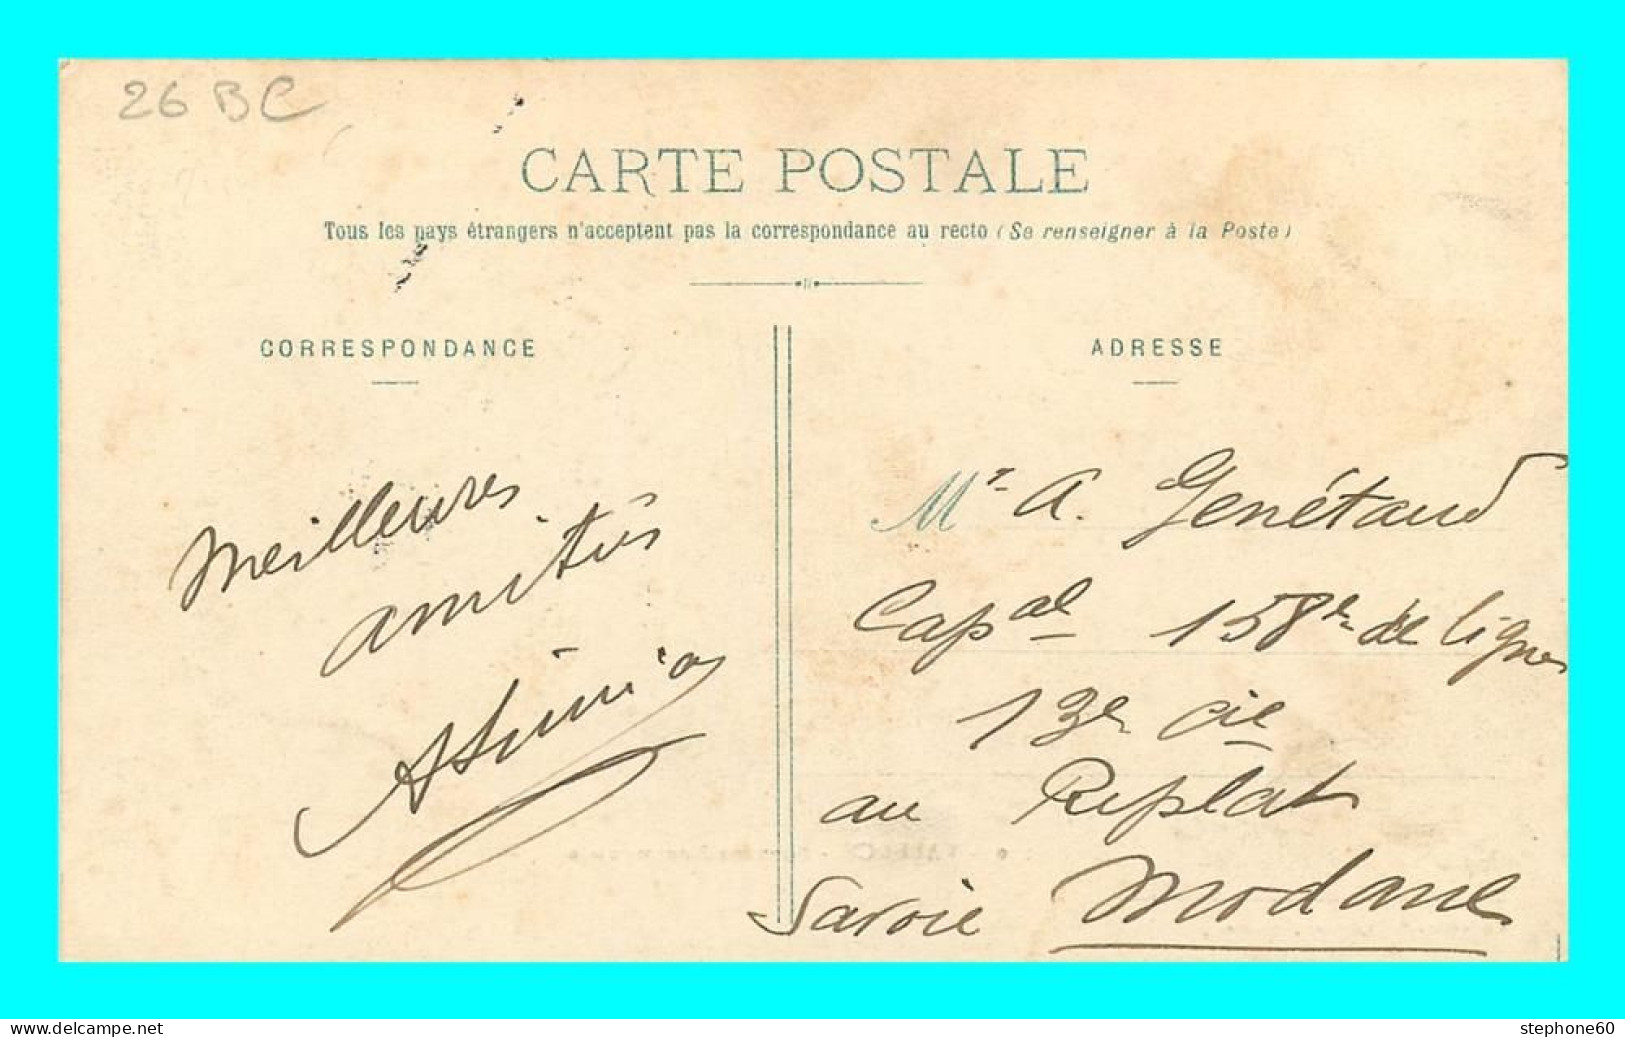 26 BC
CARTE POSTALE
Tous les pays étrangers n'acceptent pas la correspondance au recto (Se renseigner à la Poste)
CORRESPONDANCE
ADRESSE
Meilleures
amitiés
Mr A. Genétaud
Capal 158e de ligne
13e cie
au Replat
Savoie Modane
www.delcampe.net
stephone60